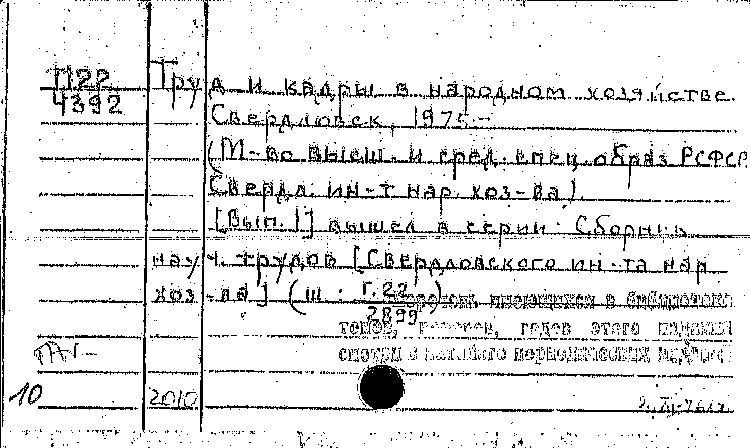 П22
4392
Труд и кадры в народном хозяйстве.
Свердловск, 1975-
(М-во высш. и сред. спец. образ РСФСР.
Свердл. ин-т нар. хоз-ва).
[Вып. 1] вышел в серии: Сборник
науч. трудов [Свердловского ин-та нар.
хоз-ва] (ш. Г.22
2899)
имеющихся в библиотеке
томов, годов этого издания
смотри в каталоге периодических
10
2010